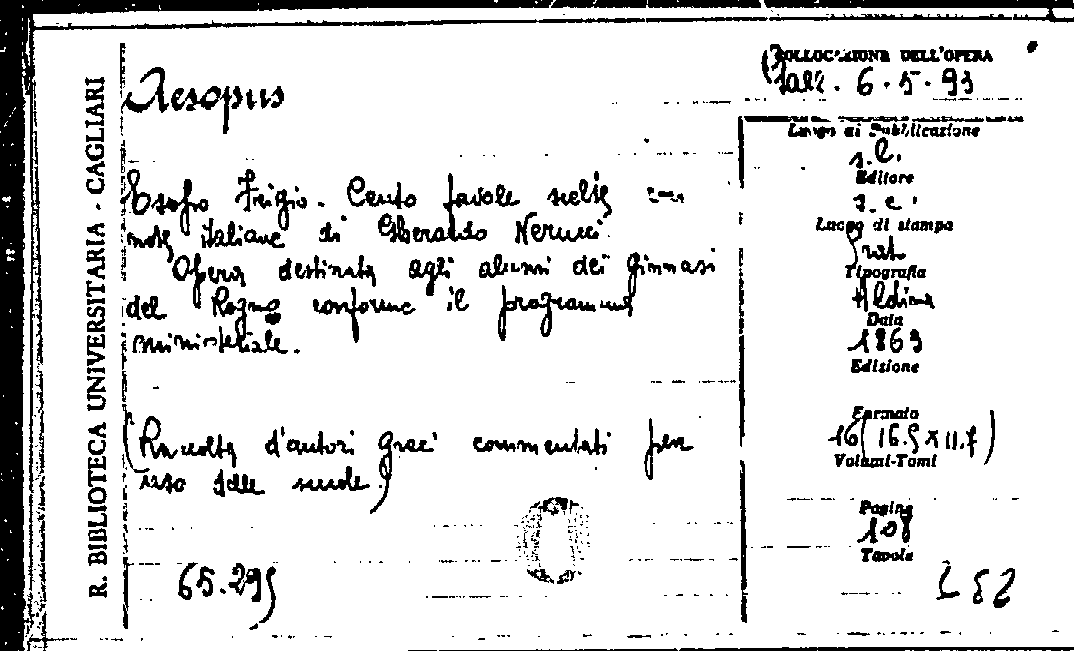 R. BIBLIOTECA UNIVERSITARIA - CAGLIARI
Aesopus
Esopo Frigio. Cento favole scelte con
note italiane di Gherardo Nerucci
Opera destinata agli alunni dei Ginnasi
del Regno conforme il programma
ministeriale.
(Raccolta d'autori greci commentati per
uso delle scuole)
65.295
COLLOCAZIONE DELL'OPERA
6.5.93
Luogo di Pubblicazione
s.l.
Editore
s.e.
Luogo di stampa
Prato
Tipografia
Aldina
Data
1863
Edizione
Formato
16 (16.5 x 11.7)
Volumi-Tomi
Pagine
108
Tavole